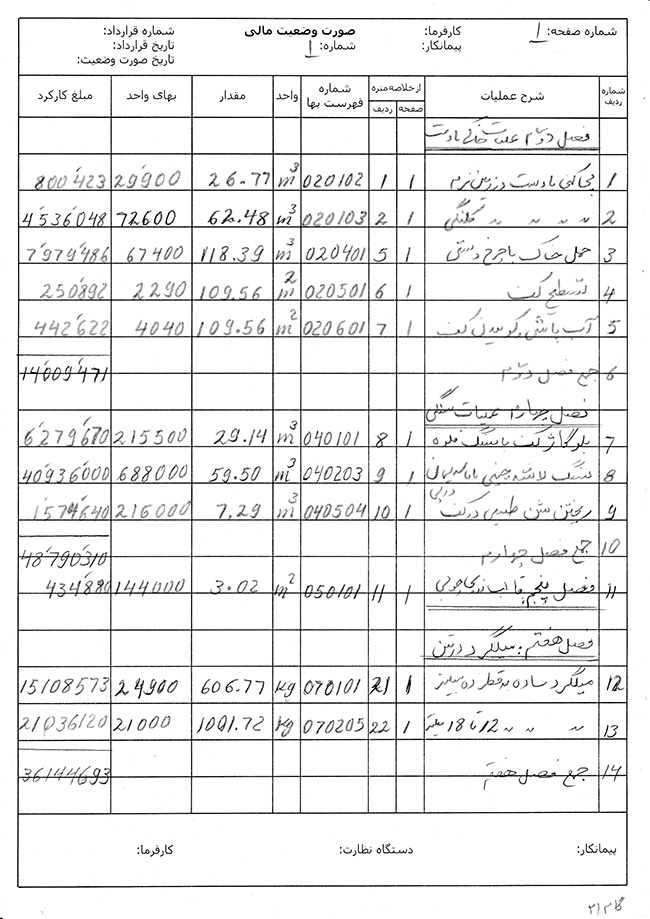 شماره صفحه: 1 کارفرما: صورت وضعیت مالی شماره قرارداد:
پیمانکار: شماره: 1 تاریخ قرارداد:
تاریخ صورت وضعیت:
شماره ردیف شرح عملیات ازخلاصه متره صفحه ردیف شماره فهرست بها واحد مقدار بهای واحد مبلغ کارکرد
فصل دوم عملیات خاکی با دست
1 پی کنی با دست در زمین نرم 1 1 020102 m3 26.77 29900 800'423
2 〃 〃 〃 〃 کلنگی 1 2 020103 m3 62.48 72600 4'536'048
3 حمل خاک با چرخ دستی 1 5 020401 m3 118.39 67400 7'979'486
4 تسطیح کف 1 6 020501 m2 109.56 2290 250'892
5 آب پاشی و کوبیدن کف 1 7 020601 m2 109.56 4040 442'622
6 جمع فصل دوم 14'009'471
فصل چهارم عملیات سنگی
7 بلوکاژ کف با سنگ قلوه 1 8 040101 m3 29.14 215500 6'279'670
8 سنگ لاشه چینی با ماسه سیمان 1 9 040203 m3 59.50 688000 40'936'000
9 ریختن شن طبیعی در کف 1 10 040504 m3 7.29 216000 1'574'640
10 جمع فصل چهارم 48'790'310
11 فصل پنجم قالب بندی چوبی 1 11 050101 m2 3.02 144000 434'880
فصل هفتم: میلگرد در بتن
12 میلگرد ساده به قطر ده میلیمتر 1 21 070101 kg 606.77 24900 15108573
13 〃 〃 〃 12 تا 18 میلیمتر 1 22 070205 kg 1001.72 21000 21036120
14 جمع فصل هفتم 36144693
پیمانکار: دستگاه نظارت: کارفرما: